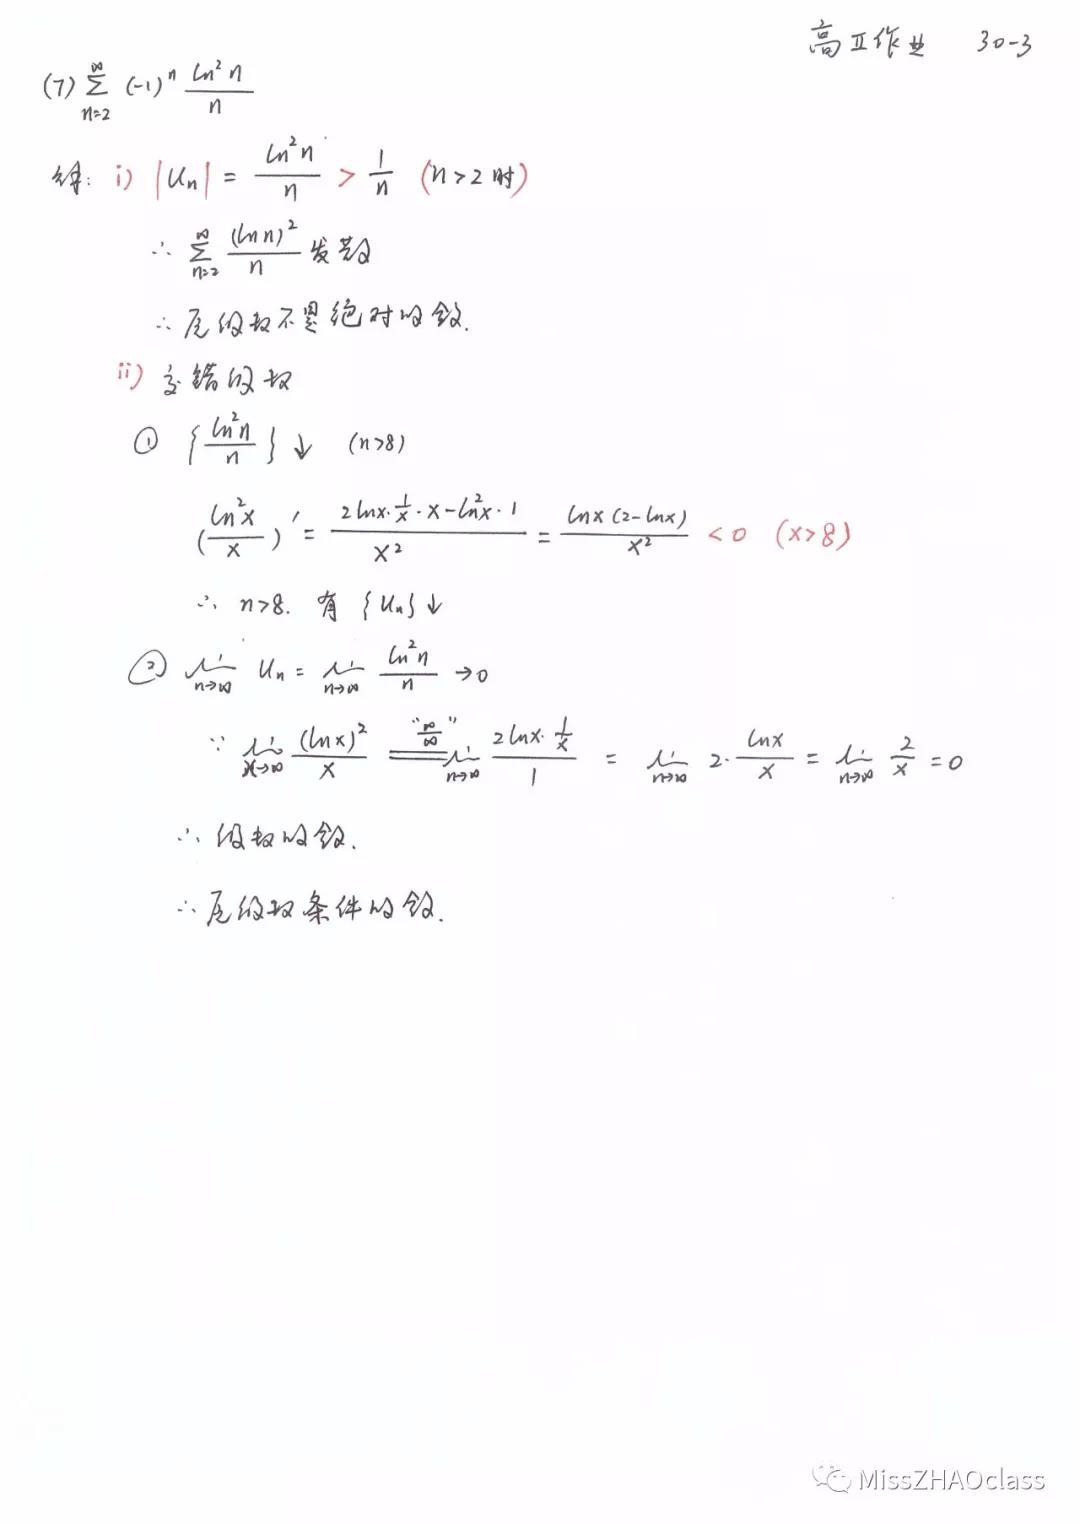 高Ⅱ作业 30-3
(7) ∑_{n=2}^{∞} (-1)^n \frac{ln²n}{n}
解: i) |U_n| = \frac{ln²n}{n} > \frac{1}{n} (n>2时)
∴ ∑_{n=2}^{∞} \frac{(ln n)²}{n} 发散
∴ 原级数不是绝对收敛.
ii) 交错级数
① {\frac{ln²n}{n}}↓ (n>8)
(\frac{ln²x}{x})' = \frac{2lnx·\frac{1}{x}·x-ln²x·1}{x²} = \frac{lnx(2-lnx)}{x²} <0 (x>8)
∴ n>8. 有 {U_n}↓
② lim_{n→∞} U_n = lim_{n→∞} \frac{ln²n}{n} →0
∵ lim_{x→∞} \frac{(lnx)²}{x} \overset{"\frac{∞}{∞}"}{=} lim_{n→∞} \frac{2lnx·\frac{1}{x}}{1} = lim_{n→∞} 2·\frac{lnx}{x} = lim_{n→∞} \frac{2}{x} =0
∴ 级数收敛.
∴ 原级数条件收敛.
MissZHAOclass